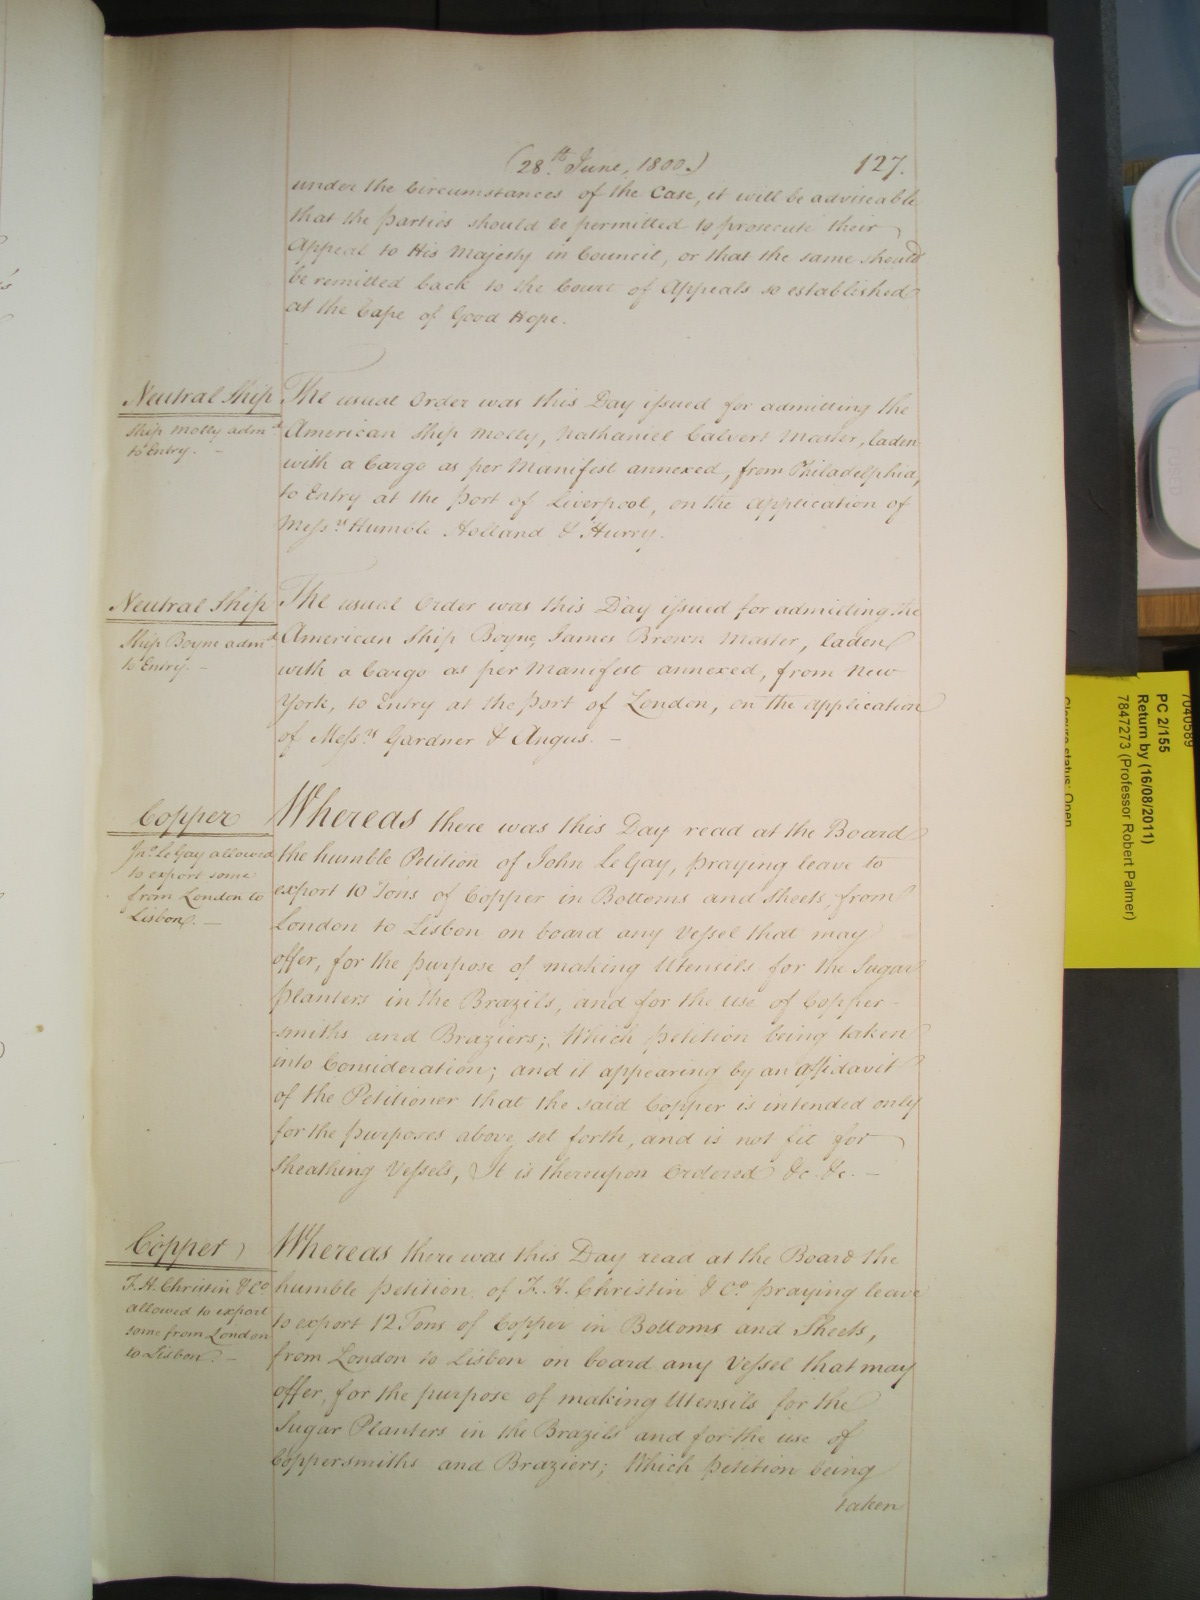 (28th June, 1800.)
127.
under the Circumstances of the Case, it will be adviseable
that the Parties should be permitted to prosecute their
Appeal to His Majesty in Council, or that the same should
be remitted back to the Court of Appeals so established
at the Cape of Good Hope.
Neutral Ship
Ship Molly admd
to Entry. –
The usual Order was this Day issued for admitting the
American Ship Molly, Nathaniel Calvert Master, laden
with a Cargo as per Manifest annexed, from Philadelphia,
to Entry at the Port of Liverpool, on the application of
Messrs Humble Holland & Hurry.
Neutral Ship
Ship Boyne admd
to Entry. –
The usual Order was this Day issued for admitting the
American Ship Boyne, James Brown Master, laden
with a Cargo as per Manifest annexed, from New
York, to Entry at the Port of London, on the application
of Messrs Gardner & Angus. –
Copper
Jno Le Gay allowed
to export some
from London to
Lisbon. –
Whereas there was this Day read at the Board
the humble Petition of John Le Gay, praying leave to
export 10 Tons of Copper in Bottoms and Sheets, from
London to Lisbon on board any Vessel that may
offer, for the purpose of making Utensils for the Sugar
Planters in the Brazils, and for the use of Copper-
-smiths and Braziers; Which petition being taken
into Consideration; and it appearing by an affidavit
of the Petitioner that the said Copper is intended only
for the purposes above set forth, and is not fit for
Sheathing Vessels, It is thereupon Ordered &c &c. –
Copper
F. H. Christin & Co
allowed to export
some from London
to Lisbon. –
Whereas there was this Day read at the Board the
humble petition of F. H. Christin & Co praying leave
to export 12 Tons of Copper in Bottoms and Sheets,
from London to Lisbon on board any Vessel that may
offer, for the purpose of making Utensils for the
Sugar Planters in the Brazils and for the use of
Coppersmiths and Braziers; Which petition being
taken
PC 2/155
Return by (16/08/2011)
7847273 (Professor Robert Palmer)
Closure status: Open